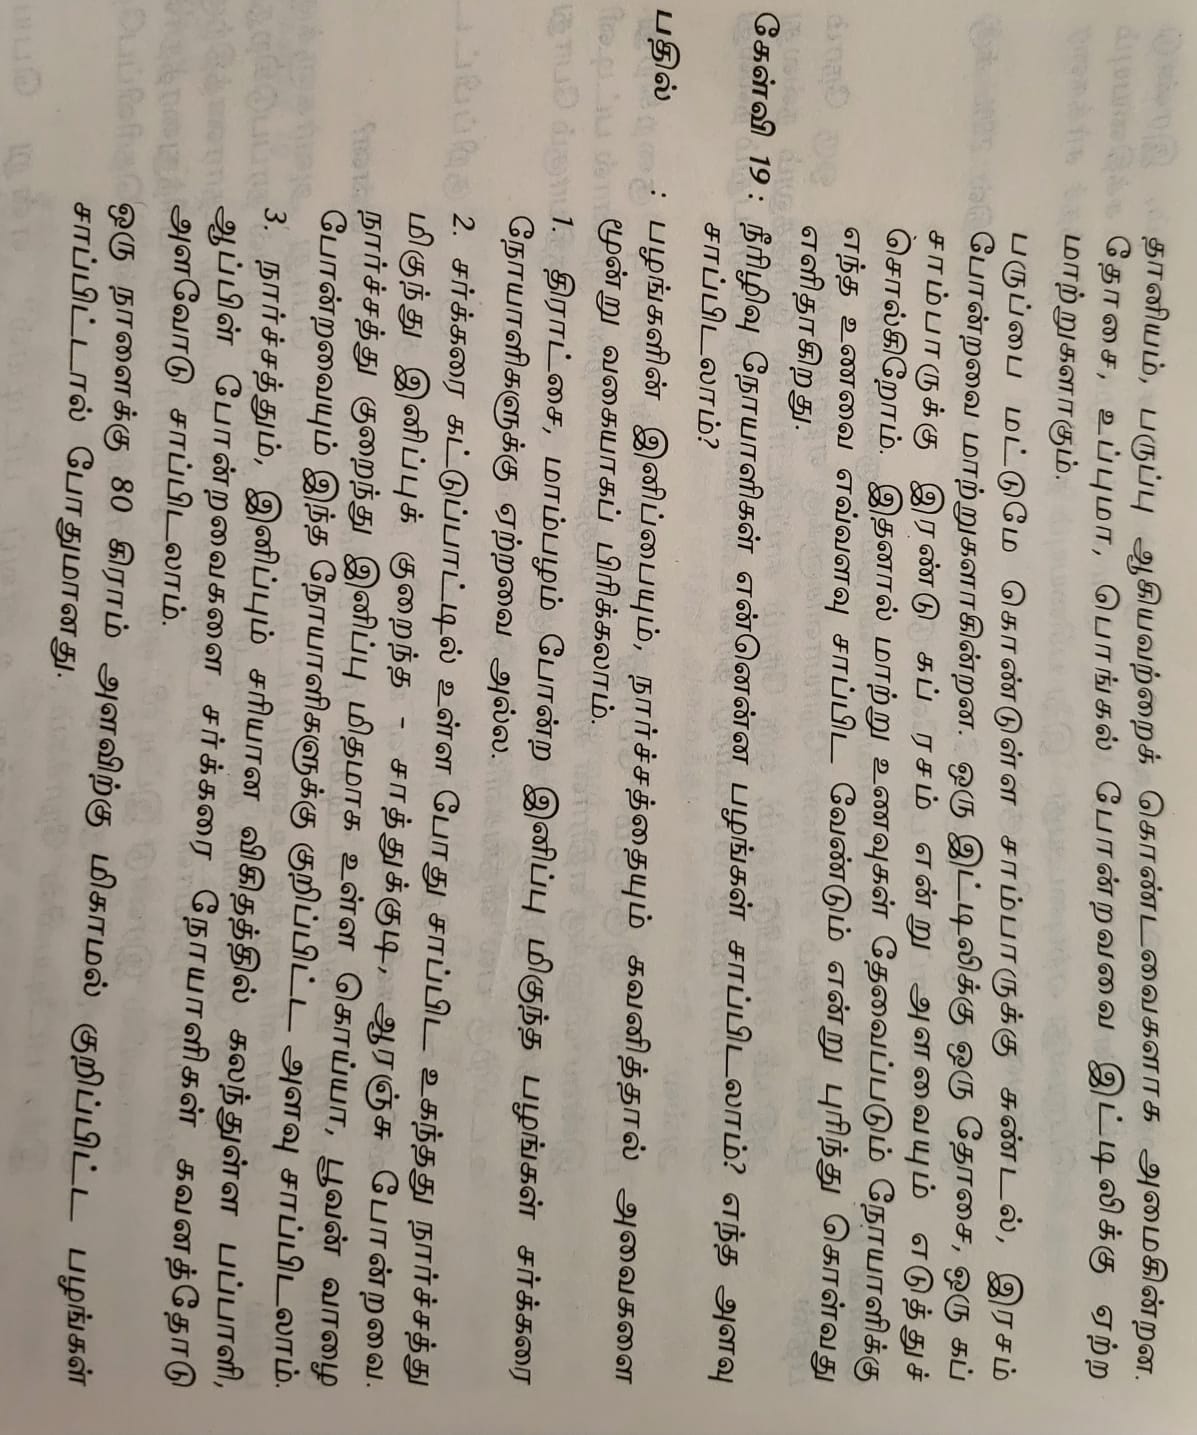 தானியம், பருப்பு ஆகியவற்றைக் கொண்டவைகளாக அமைகின்றன.
தோசை, உப்புமா, பொங்கல் போன்றவவை இட்டிலிக்கு ஏற்ற
மாற்றுகளாகும்.
பருப்பை மட்டுமே கொண்டுள்ள சாம்பாருக்கு சுண்டல், இரசம்
போன்றவை மாற்றுகளாகின்றன. ஒரு இட்டிலிக்கு ஒரு தோசை, ஒரு கப்
சாம்பாருக்கு இரண்டு கப் ரசம் என்று அளவையும் எடுத்துச்
சொல்கிறோம். இதனால் மாற்று உணவுகள் தேவைப்படும் நோயாளிக்கு
எந்த உணவை எவ்வளவு சாப்பிட வேண்டும் என்று புரிந்து கொள்வது
எளிதாகிறது.
கேள்வி 19 : நீரிழிவு நோயாளிகள் என்னென்ன பழங்கள் சாப்பிடலாம்? எந்த அளவு
சாப்பிடலாம்?
பதில் : பழங்களின் இனிப்பையும், நார்ச்சத்தையும் கவனித்தால் அவைகளை
மூன்று வகையாகப் பிரிக்கலாம்.
1. திராட்சை, மாம்பழம் போன்ற இனிப்பு மிகுந்த பழங்கள் சர்க்கரை
நோயாளிகளுக்கு ஏற்றவை அல்ல.
2. சர்க்கரை கட்டுப்பாட்டில் உள்ள போது சாப்பிட உகந்தது நார்ச்சத்து
மிகுந்து இனிப்புக் குறைந்த - சாத்துக்குடி, ஆரஞ்சு போன்றவை.
நார்ச்சத்து குறைந்து இனிப்பு மிதமாக உள்ள கொய்யா, பூவன் வாழை
போன்றவையும் இந்த நோயாளிகளுக்கு குறிப்பிட்ட அளவு சாப்பிடலாம்.
3. நார்ச்சத்தும், இனிப்பும் சரியான விகிதத்தில் கலந்துள்ள பப்பாளி,
ஆப்பிள் போன்றவைகளை சர்க்கரை நோயாளிகள் கவனத்தோடு
அளவோடு சாப்பிடலாம்.
ஒரு நாளைக்கு 80 கிராம் அளவிற்கு மிகாமல் குறிப்பிட்ட பழங்கள்
சாப்பிட்டால் போதுமானது.